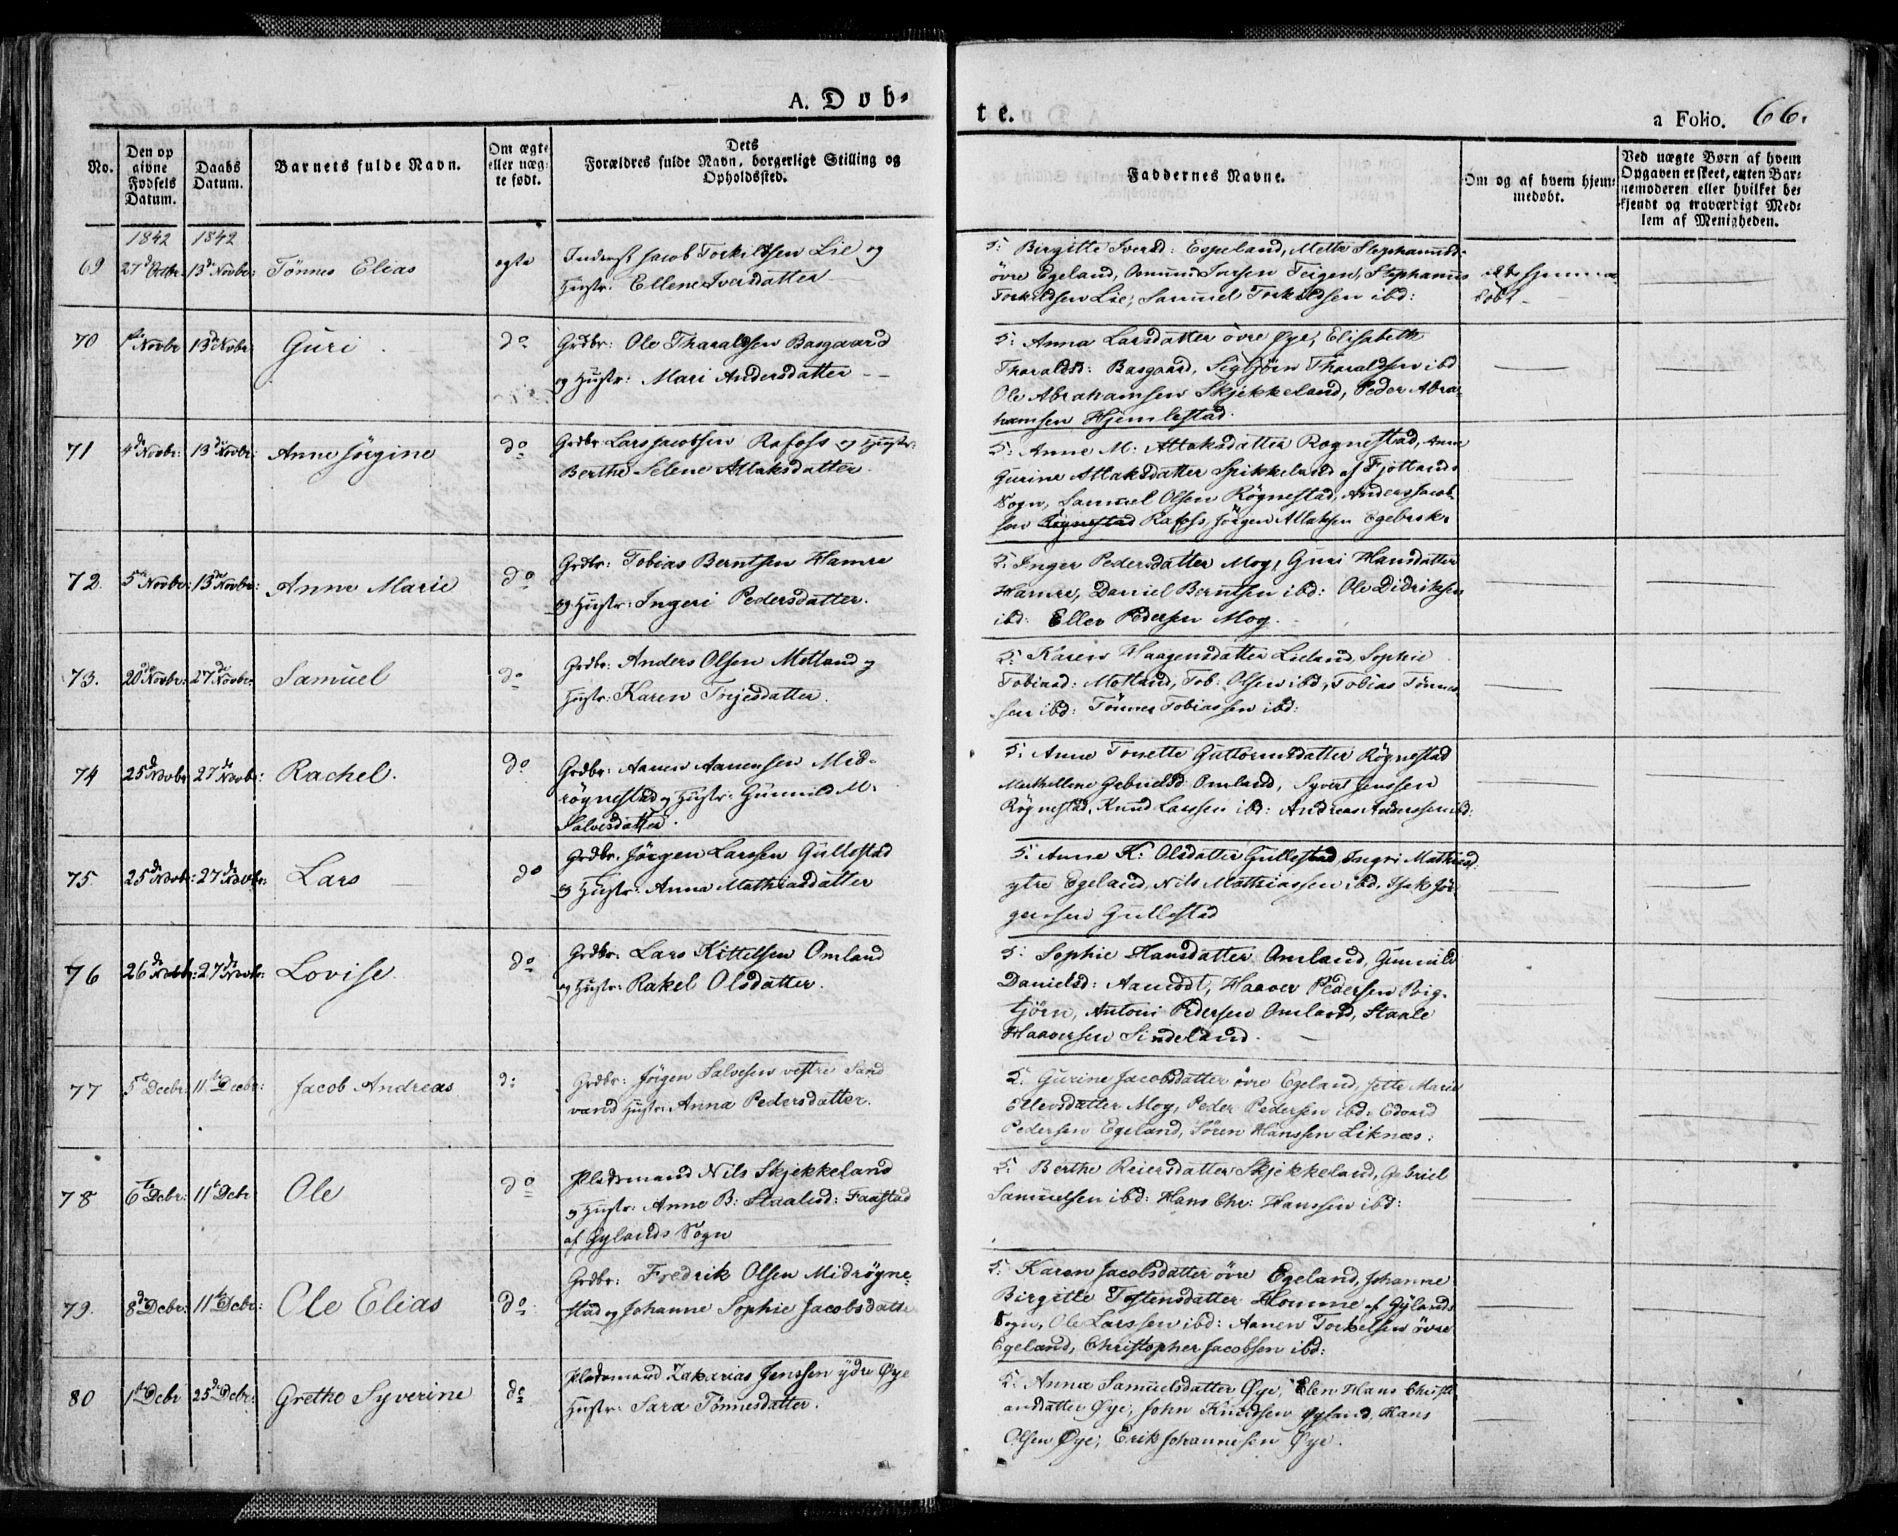 A. Døb-
te.
a Folio. 66.
No.
Den op
givne
Fødsels
Datum.
Daabs
Datum.
Barnets fulde Navn.
Om ægte
eller uæg-
te født.
Dets
Forældres fulde Navn, borgerligt Stilling og
Opholdssted.
Faddernes Navne.
Om og af hvem hjem-
medøbt.
Ved uægte Børn af hvem
Opgaven er skeet, enten Bar-
nemoderen eller hvilket be-
kjendt og troværdigt Med-
lem af Menigheden.
1842 1842
69 27de Octbr: 13de Novbr: Tønnes Elias ægte
Jacob Torkildsen Lie og
Hustr: Ellene Iversdatter
5: Birgitte Iversd: Espeland, Mette Stephansd:
övre Egeland, Omund Teigen, Stephanus
Torkildsen Lie, Samuel Torkildsen ibd:
hjemme
döbt
70 1ste Novbr 13de Novbr: Guri do
Grdbr: Ole Tharaldsen Basgaard
og Hustr: Mari Andersdatter
5: Anna Larsdatter övre Øye, Elisabeth
Tharaldsd: Basgaard, Sigbjörn Tharaldsen ibd
Ole Abrahamsen Skjekkeland, Peder Abra-
hamsen Hjemlestad.
71 4de Novbr: 13de Novbr: Anne Jörgine do
Grdbr Lars Jacobsen Rafoss og Hustr:
Berthe Selene Atlaksdatter.
5: Anne M: Atlaksdatter Rögnestad, Anne
Gurine Atlaksdatter Spikkeland af Fjotlands
Sogn, Samuel Olsen Rögnestad, Anders Jacob-
sen Rögnestad Rafoss, Jörgen Atlaksen Egebæk.
72. 5te Novbr: 13de Novbr: Anne Marie do
Grdbr: Tobias Berntsen Hamre
og Hustr: Ingeri Pedersdatter.
5: Inger Pedersdatter Moy, Guri Hansdatter
Hamre, Daniel Berntsen ibd: Ole Didriksen
ibd: Ellev Pedersen Moy.
73. 20de Novbr: 27de Novbr: Samuel do
Grdbr: Anders Olsen Motland og
Hustr: Karen Terjesdatter.
5: Karen Haagensdatter Lieland, Sophie
Tobiasd: Motland, Tob: Olsen ibd, Tobias Tönnes-
sen ibd: Tönnes Tobiassen ibd:
74 25de Novbr 27de Novbr: Rachel. do
Grdbr: Aanen Aanensen Mid-
rögnestad og Hustr: Gunnild M.
Salvesdatter.
5: Anne Tonette Guttormsdatter Rögnestad
Gabrielsd: Omland, Syvert Jenssen
Rögnestad, Knud Larssen ibd: Andreas Anderssen ibd:
75 25de Novbr: 27de Novbr: Lars do
Grdbr. Jörgen Larssen Gullestad
og Hustr: Anna Mathiasdatter
5: Anne K: Olsdatter Gullestad, Ingri Mathiasd:
ytre Egeland, Nils Mathiassen ibd, Isak Jör-
gensen Gullestad
76 26de Novbr: 27de Novbr: Lovise do
Grdbr: Lars Kittelsen Omland
og Hustr: Rakel Olsdatter.
5: Sophie Hansdatter Omland, Gunnild
Danielsd: Aamodt, Haaver Pedersen Big-
tjörn, Antoni Pedersen Omland, Staale
Haaversen Sindeland.
77 5te Decbr: 11te Decbr: Jacob Andreas do
Grdbr: Jörgen Salvesen vestre Sand
vand Hustr: Anna Pedersdatter.
5. Gurine Jacobsdatter övre Egeland, Jette Marie
Ellevsdatter Moy, Peder Pedersen ibd: Edvard
Pedersen Egeland, Sören Hanssen Liknæs:
78 6te Decbr: 11te Decbr Ole do
Pladsmand Nils Skjekkeland
og Hustr: Anne B: Staalesd: Faastad
af Gylands Sogn
5. Berthe Reiersdatter Skjekkeland, Gabriel
Samuelsen ibd: Hans Chr: Hanssen ibd:
79. 8de Decbr: 11te Decbr: Ole Elias do
Grdbr: Fredrik Olsen Midrögne-
stad og Johanne Sophie Jacobsdatter
5. Karen Jacobsdatter övre Egeland, Johanne
Birgitte Tostensdatter Homme af Gylands
Sogn, Ole Larssen ibd: Aanen Torkelsen övre
Egeland, Christopher Jacobsen ibd:
80 1ste Decbr 25de Decbr: Grethe Syverine do
Pladsmand Zakarias Jenssen ydre Øye
Hustr: Sara Tönnesdatter.
5. Anna Samuelsdatter Øye, Elen Hans Christi-
ansdatter Øye, John Knudsen Øyland, Hans
Olsen Øye, Erik Johannesen Øye.